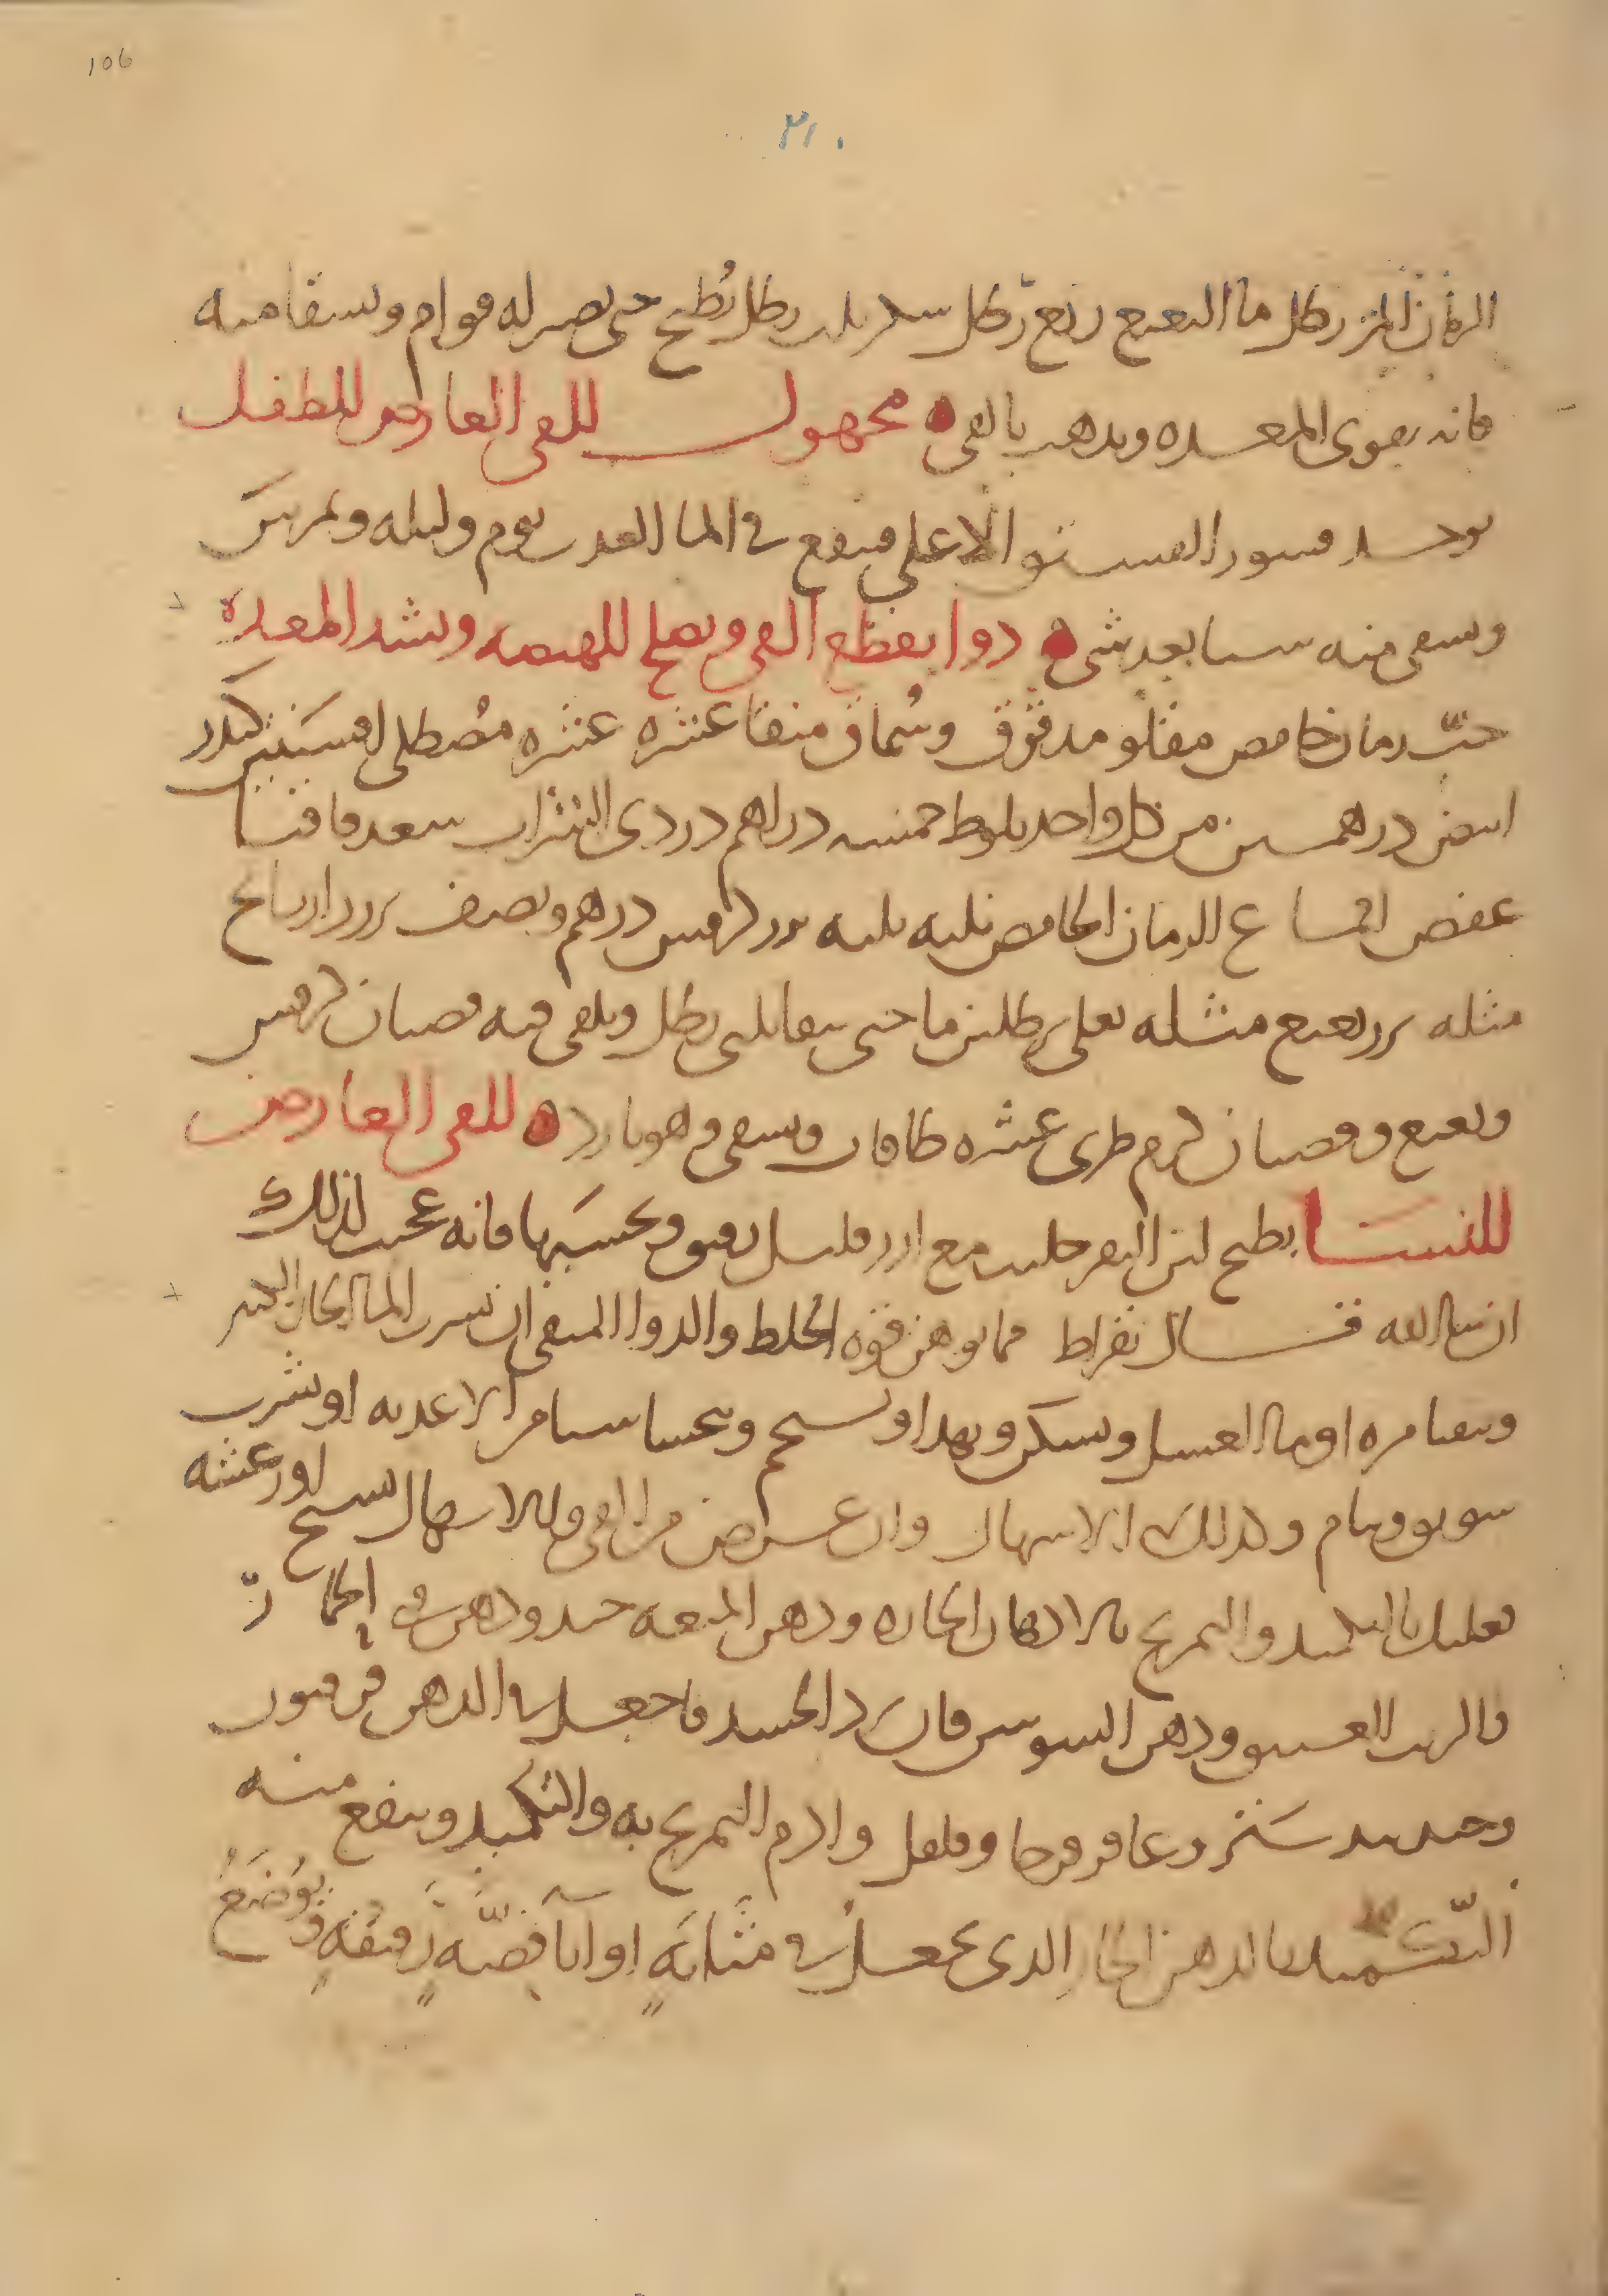 106
٢١٠
الرمان المز رطل ما النعنع ربع رطل سكر ثلث رطل يُطبخ حتى يصير له قوام ويسقا منه
فانه يقوى المعده ويذهب بالقى ه مجهول للقى العارض للطفل
يوخذ قشور الفستق الاعلى فينقع فى الما العذب يوم وليله ويمرس
ويسقى منه شيا بعد شى ه دوا يقطع القى ويصلح للهيضه ويشد المعده
حبّ رمان حامض مقلو مدقوق وسُماق منقا عشره عشره مُصطكى افسنتين كندر
ابيض درهمين من كل واحد بلوط خمسه دراهم دردى الشراب سعد قاقيا
عفص اقماع الرمان الحامض ثلثه ثلثه بزر كرفس درهم ونصف بزر رازيانج
مثله بزر نعنع مثله يغلى برطلين ما حتى يبقا ثلثى رطل ويلقى فيه قضبان كرفس
ونعنع وقضبان كرم طرى عشره طاقات ويسقى وهو بارد ه للقى العارض
للنسا يطبخ لبن البقر حليب مع ارز قليل يعوم ويحسيها فانه عجيب لذلك
ان شا الله قال بقراط مما يوهن قوه الخلط والدوا المقى ان يشرب الما الحار الكثير
ويتقيا مره او ما العسل ويسكن ويهدا او يستحم ويتحسا شيا من الاغذيه او يشرب
سويق وينام وكذلك الاسهال وان عرض من القى والاسهال تشنج او رعشه
فعليك بالتكميد والتمريخ بالادهان الحاره ودهن الميعه جيد ودهن فى الحار
والزيت العتيق ودهن السوسن فان برد الجسد فاجعل فى الدهن فرفيون
وجندبيدستر وعاقر قرحا وفلفل وادم التمريخ به والتكميد وينفع منه
التّكميد بالدهن الحار الذى يجعل فى مثانَةٍ او آنا فضّه رقيقةٍ ويوضَعُ